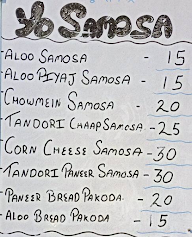 Yo SAMOSA
ALOO SAMOSA - 15
ALOO PIYAJ SAMOSA - 15
CHOWMEIN SAMOSA - 20
TANDORI CHAAP SAMOSA - 25
CORN CHEESE SAMOSA - 30
TANDORI PANEER SAMOSA - 30
PANEER BREAD PAKODA - 20
ALOO BREAD PAKODA - 15